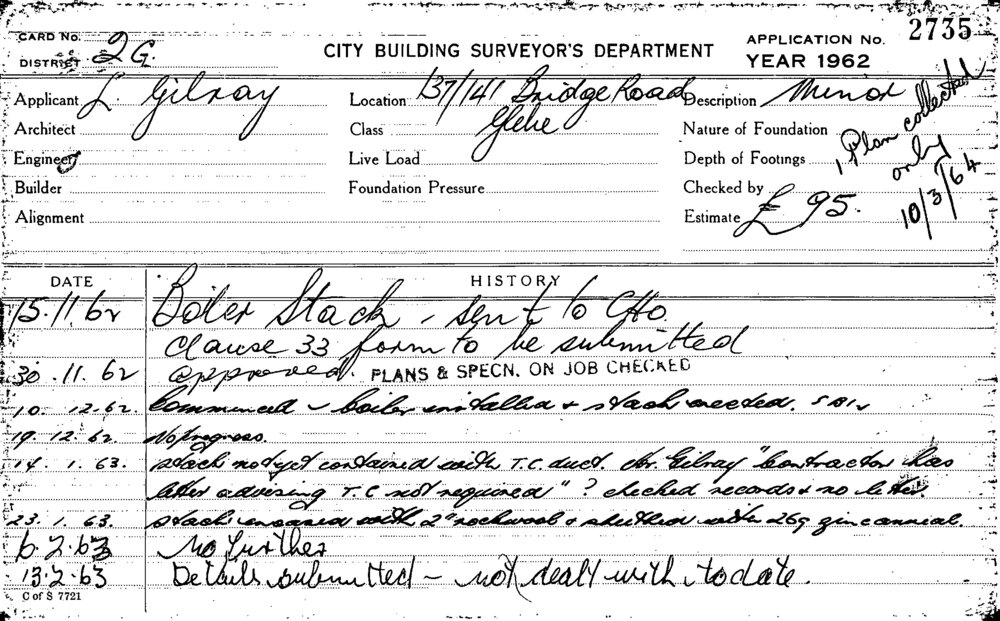 CARD No. 2G.
DISTRICT
CITY BUILDING SURVEYOR'S DEPARTMENT
APPLICATION No. 2735
YEAR 1962
Applicant L. Gilray
Location 137/141 Bridge Road
Glebe
Description Minor
Architect
Class
Nature of Foundation
Engineer
Live Load
Depth of Footings
Builder
Foundation Pressure
Checked by
Alignment
Estimate £ 95.
1 Plan collected
only
10/3/64
DATE
HISTORY
15.11.62 Boiler Stack - sent to CHO.
Clause 33 form to be submitted
30.11.62 approved. PLANS & SPECN. ON JOB CHECKED
10.12.62. Commenced - boiler installed & stack erected.
19.12.62. No progress.
14.1.63. Stack not yet contained with T.C. duct. Mr. Gilray "Contractor has
letter advising T.C not required" ? checked records & no letter.
23.1.63. Stack encased with 2" rockwool & sheathed with 26g zincanneal.
6.2.63 No further
13.2.63 Details submitted - not dealt with to date.
C of S 7721